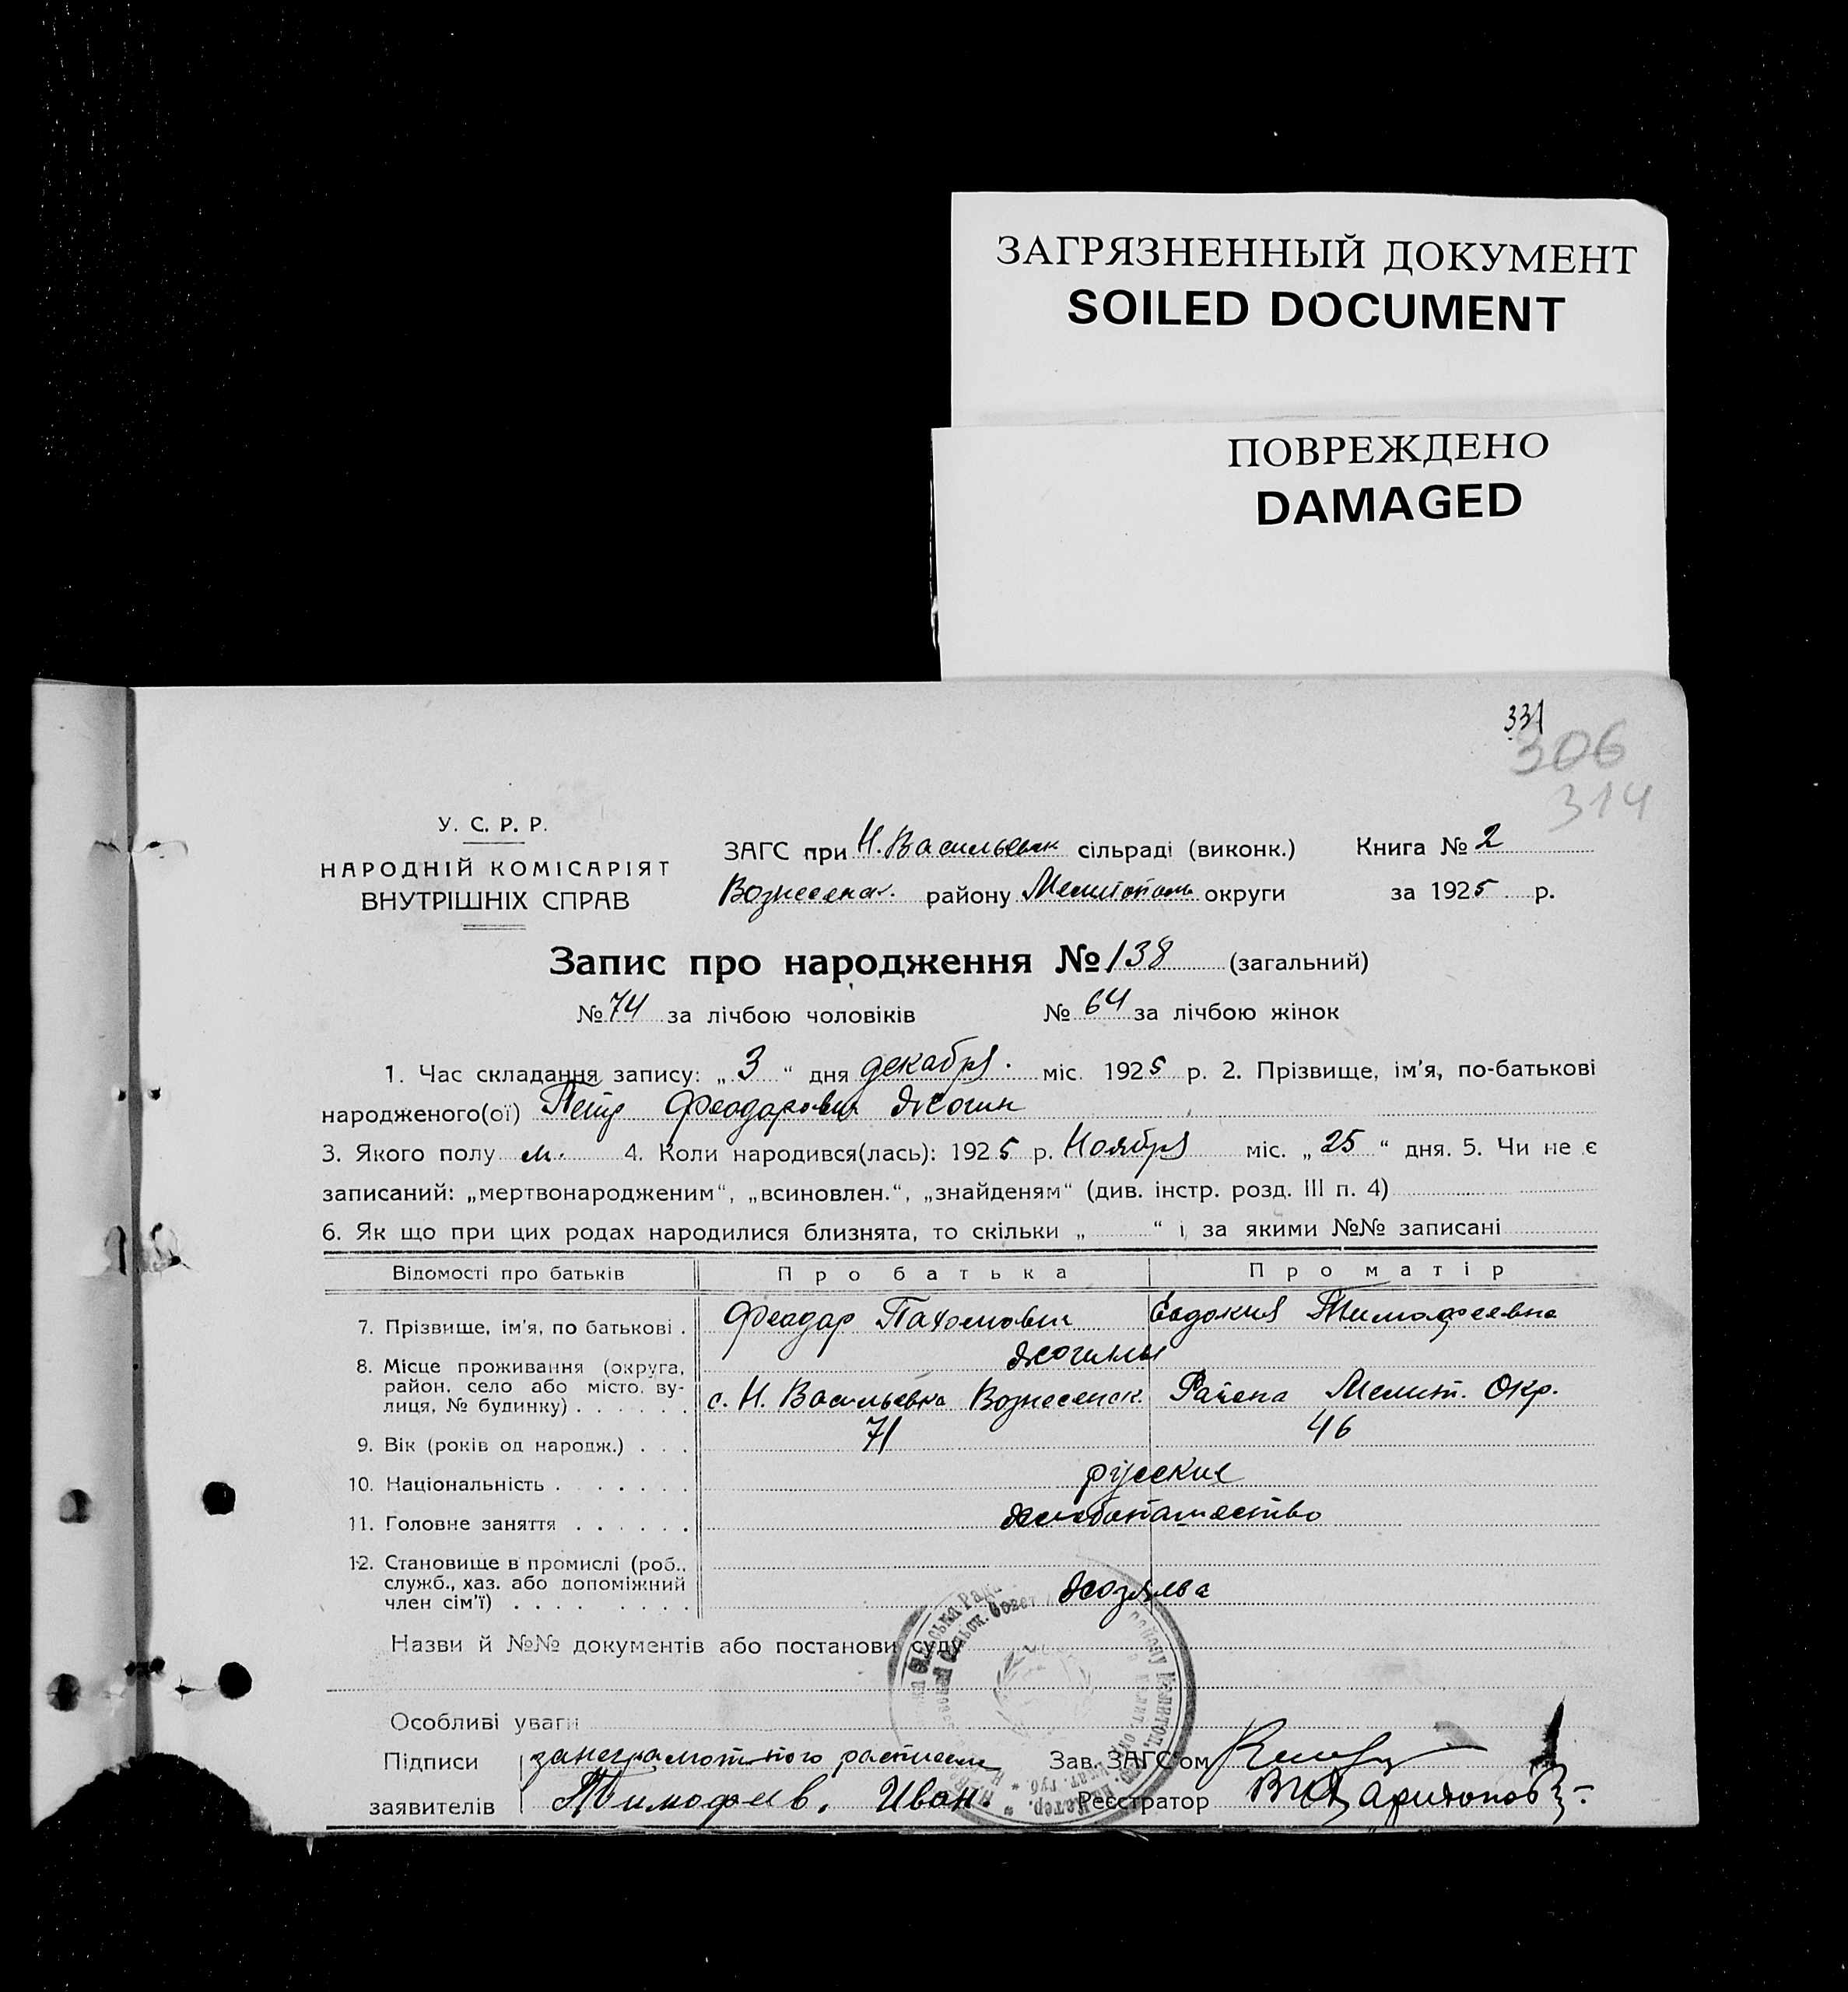 ЗАГРЯЗНЕННЫЙ ДОКУМЕНТ
SOILED DOCUMENT
ПОВРЕЖДЕНО
DAMAGED
331
306
314
У. С. Р. Р.
НАРОДНІЙ КОМІСАРІЯТ
ВНУТРІШНІХ СПРАВ
ЗАГС при Н. Васильевк сільраді (виконк.) Книга № 2
Вознесенск. району Мелитополь округи за 1925 р.
Запис про народження № 138 (загальний)
№ 74 за лічбою чоловіків № 64 за лічбою жінок
1. Час складання запису: „ 3 “ дня декабря. міс. 1925 р. 2. Прізвище, ім'я, по-батькові
народженого(ої) Петр Феодорович
3. Якого полу м. 4. Коли народився(лась): 1925 р. Ноября міс. „ 25 “ дня. 5. Чи не є
записаний: „мертвонародженим“, „всиновлен.“, „знайденям“ (див. інстр. розд. III п. 4)
6. Як що при цих родах народилися близнята, то скільки „ “ і за якими №№ записані
Відомості про батьків Про батька Про матір
7. Прізвище, ім'я, по батькові . Феодар Пахомович Евдокия Тимофеевна
8. Місце проживання (округа,
район, село або місто, ву-
лиця, № будинку) . . . . . . с. Н. Васильевка Вознесенск. Района Мелит. Окр.
9. Вік (років од народж.) . . . 71 46
10. Національність . . . . . . . русские
11. Головне заняття . . . . . . хлебопашество
12. Становище в промислі (роб.,
служб., хаз. або допоміжний
член сім'ї) . . . . . . . . хозяева
Назви й №№ документів або постанови суду
Особливі уваги
Підписи занеграмотного Зав. ЗАГС'ом
заявителів Тимофеев. Иван. Реєстратор Харитонов